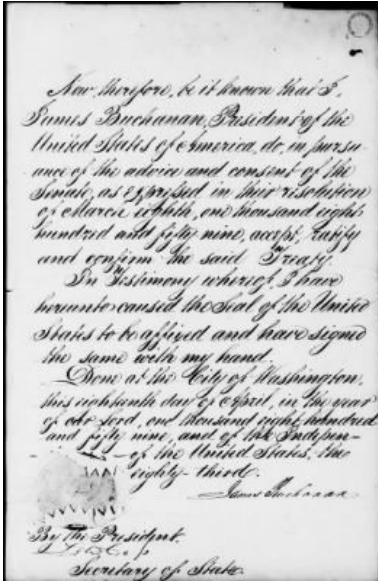 Now, therefore, be it known that I,
James Buchanan, President of the
United States of America, do, in pursu-
ance of the advice and consent of the
Senate, as expressed in their resolution
of March eighth, one thousand eight
hundred and fifty nine, accept, ratify
and confirm the said Treaty.
In Testimony whereof, I have
hereunto caused the Seal of the United
States to be affixed and have signed
the same with my hand.
Done at the City of Washington,
this eighteenth day of April, in the year
of our Lord, one thousand eight hundred
and fifty nine, and of the Indepen-
of the United States, the
eighty-third.
James Buchanan
By the President
Secretary of State.